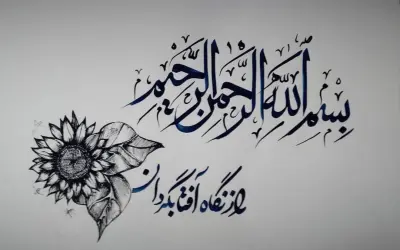 بِسْمِ اللَّهِ الرَّحْمنِ الرَّحيمِ
از نگاه آفتابگردان